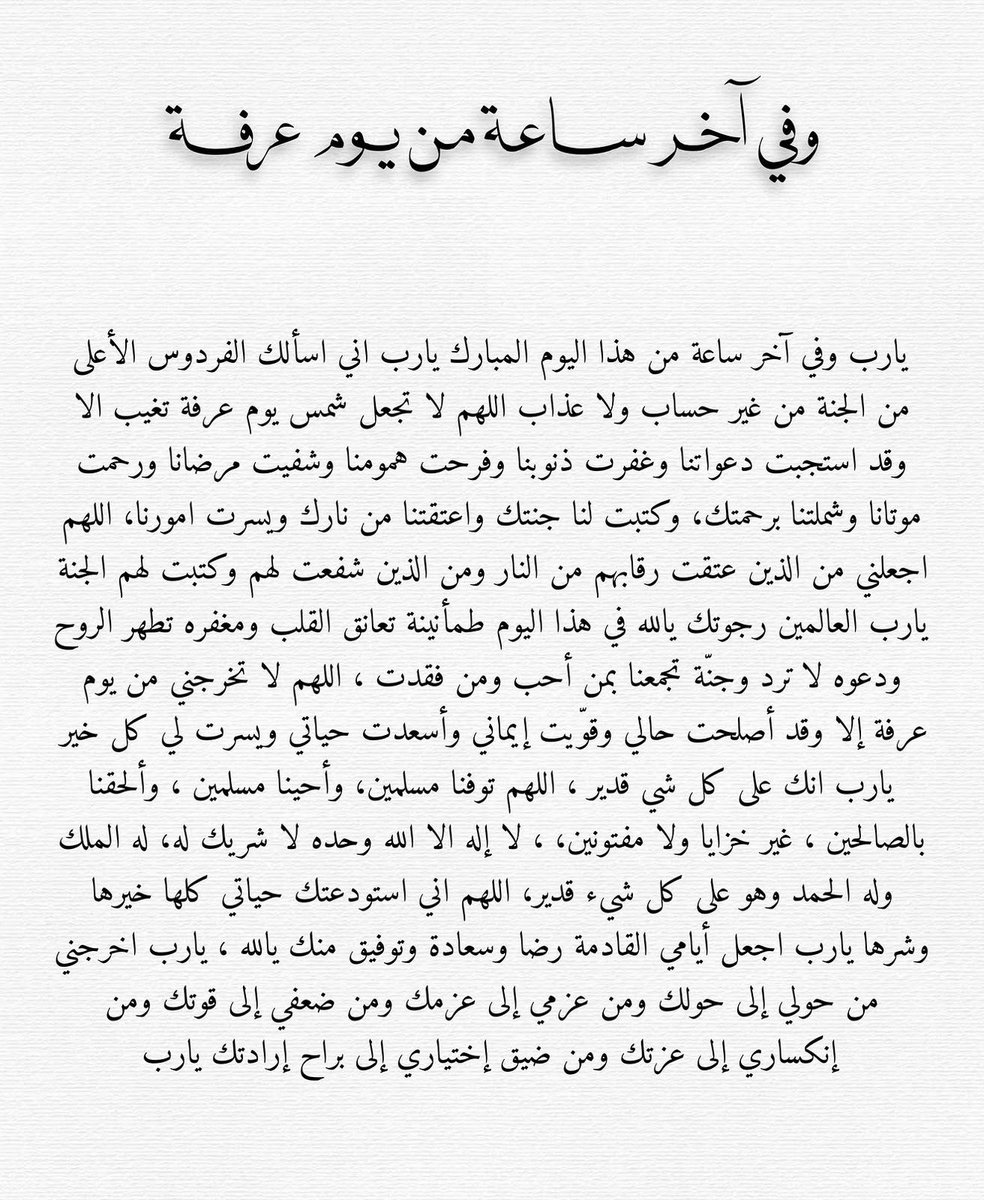 وفي آخر ساعة من يوم عرفة
يارب وفي آخر ساعة من هذا اليوم المبارك يارب اني اسألك الفردوس الأعلى
من الجنة من غير حساب ولا عذاب اللهم لا تجعل شمس يوم عرفة تغيب الا
وقد استجبت دعواتنا وغفرت ذنوبنا وفرحت همومنا وشفيت مرضانا ورحمت
موتانا وشملتنا برحمتك، وكتبت لنا جنتك واعتقتنا من نارك ويسرت امورنا، اللهم
اجعلني من الذين عتقت رقابهم من النار ومن الذين شفعت لهم وكتبت لهم الجنة
يارب العالمين رجوتك يالله في هذا اليوم طمأنينة تعانق القلب ومغفره تطهر الروح
ودعوه لا ترد وجنّة تجمعنا بمن أحب ومن فقدت ، اللهم لا تخرجني من يوم
عرفة إلا وقد أصلحت حالي وقوّيت إيماني وأسعدت حياتي ويسرت لي كل خير
يارب انك على كل شي قدير ، اللهم توفنا مسلمين، وأحينا مسلمين ، وألحقنا
بالصالحين ، غير خزايا ولا مفتونين، ، لا إله الا الله وحده لا شريك له، له الملك
وله الحمد وهو على كل شيء قدير، اللهم اني استودعتك حياتي كلها خيرها
وشرها يارب اجعل أيامي القادمة رضا وسعادة وتوفيق منك يالله ، يارب اخرجني
من حولي إلى حولك ومن عزمي إلى عزمك ومن ضعفي إلى قوتك ومن
إنكساري إلى عزتك ومن ضيق إختياري إلى براح إرادتك يارب